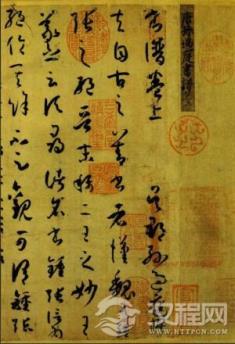 唐孫過庭書譜
書譜卷上 吳郡孫過庭
夫自古之善書者漢魏有
張之絕晉末稱二王之妙王
羲之云頃尋諸名書鍾張信
絕倫其餘不足觀可謂鍾張
汉程网
HTTPCN.COM